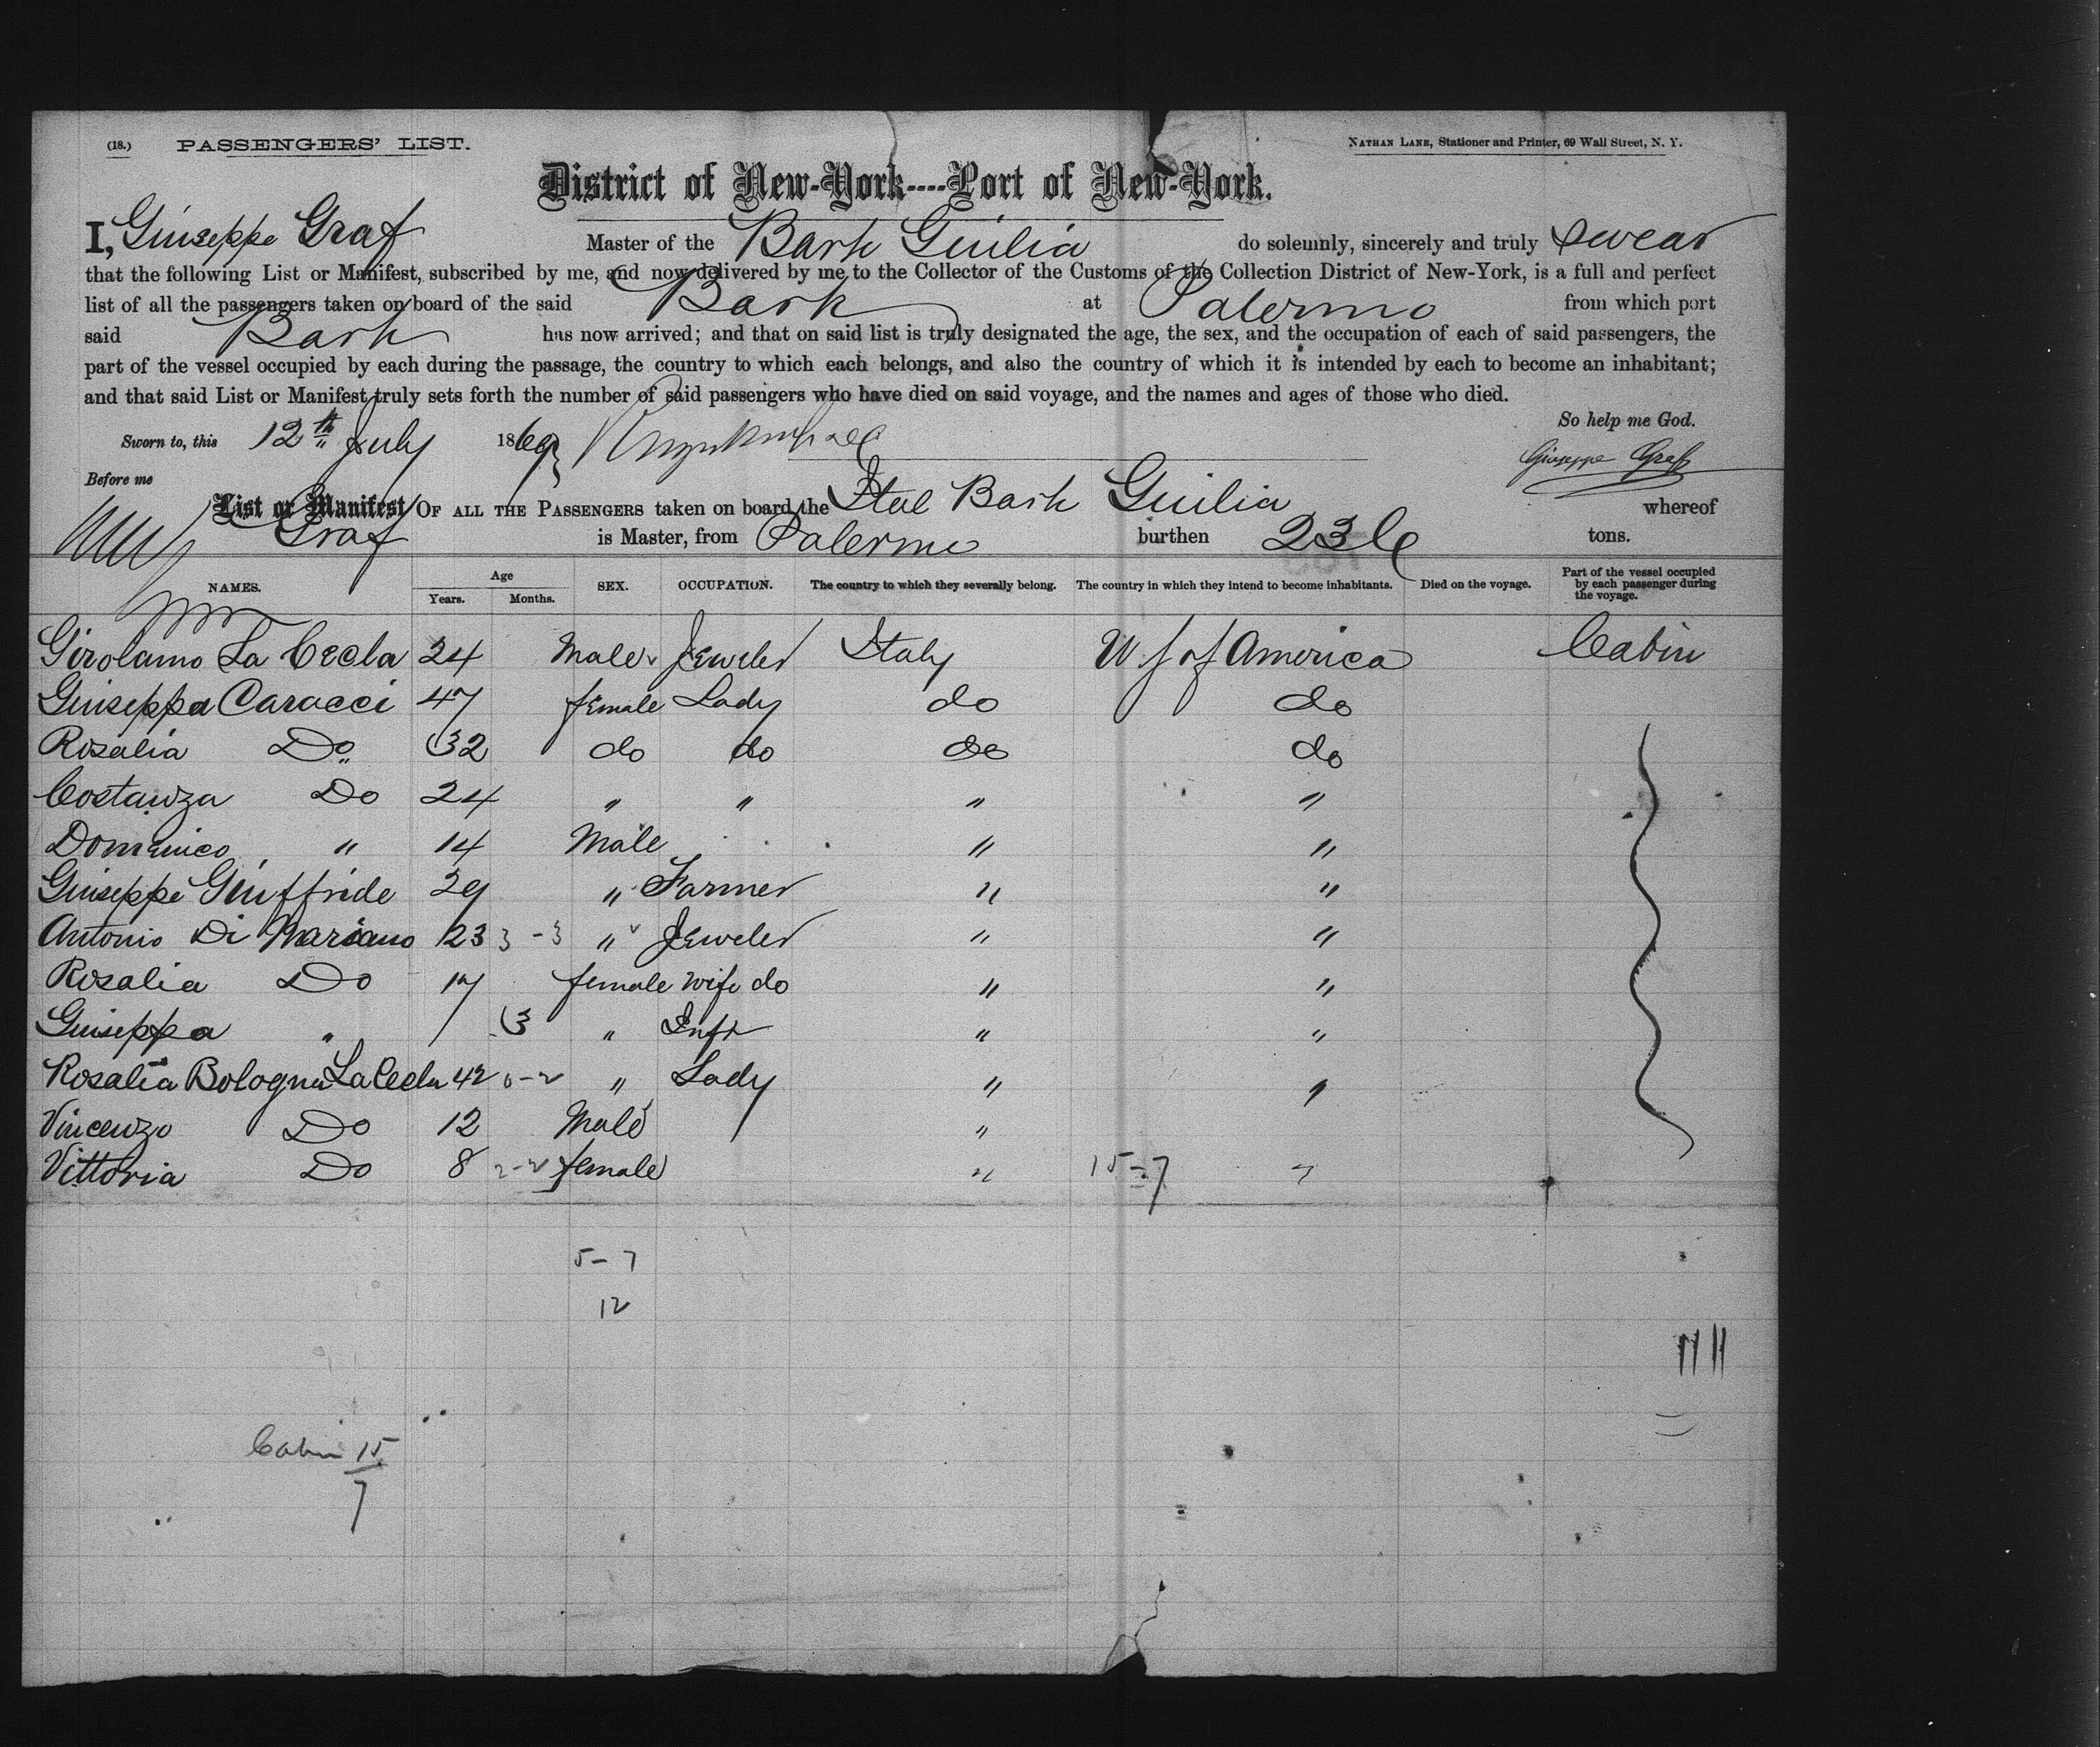 (18.) PASSENGERS' LIST. NATHAN LANE, Stationer and Printer, 69 Wall Street, N. Y.
District of New-York----Port of New-York.
I, Giuseppe Graf Master of the Bark Guilia do solemnly, sincerely and truly swear
that the following List or Manifest, subscribed by me, and now delivered by me to the Collector of the Customs of the Collection District of New-York, is a full and perfect
list of all the passengers taken on board of the said Bark at Palermo from which port
said Bark has now arrived; and that on said list is truly designated the age, the sex, and the occupation of each of said passengers, the
part of the vessel occupied by each during the passage, the country to which each belongs, and also the country of which it is intended by each to become an inhabitant;
and that said List or Manifest truly sets forth the number of said passengers who have died on said voyage, and the names and ages of those who died.
So help me God.
Sworn to, this 12th July 1869
Giuseppe Graf
Before me
List or Manifest OF ALL THE PASSENGERS taken on board the Ital Bark Guilia whereof
Graf is Master, from Palermo burthen 236 tons.
NAMES. Age Years. Months. SEX. OCCUPATION. The country to which they severally belong. The country in which they intend to become inhabitants. Died on the voyage. Part of the vessel occupied by each passenger during the voyage.
Girolamo La Cecla 24 Male Jeweler Italy U S of America Cabin
Giuseppa Caracci 47 female Lady do do
Rosalia Do 32 do do do do
Costanza Do 24 " " " "
Domenico " 14 Male " "
Giuseppe Giuffride 29 " Farmer " "
Antonio Di Mariano 23 3-3 " Jeweler " "
Rosalia Do 17 female wife do " "
Giuseppa " / 3 " Inft " "
Rosalia Bologna La Cecla 42 0-2 " Lady " "
Vincenzo Do 12 Male "
Vittoria Do 8 2-2 female " 15-7 "
5-7
12
Cabin 15
7